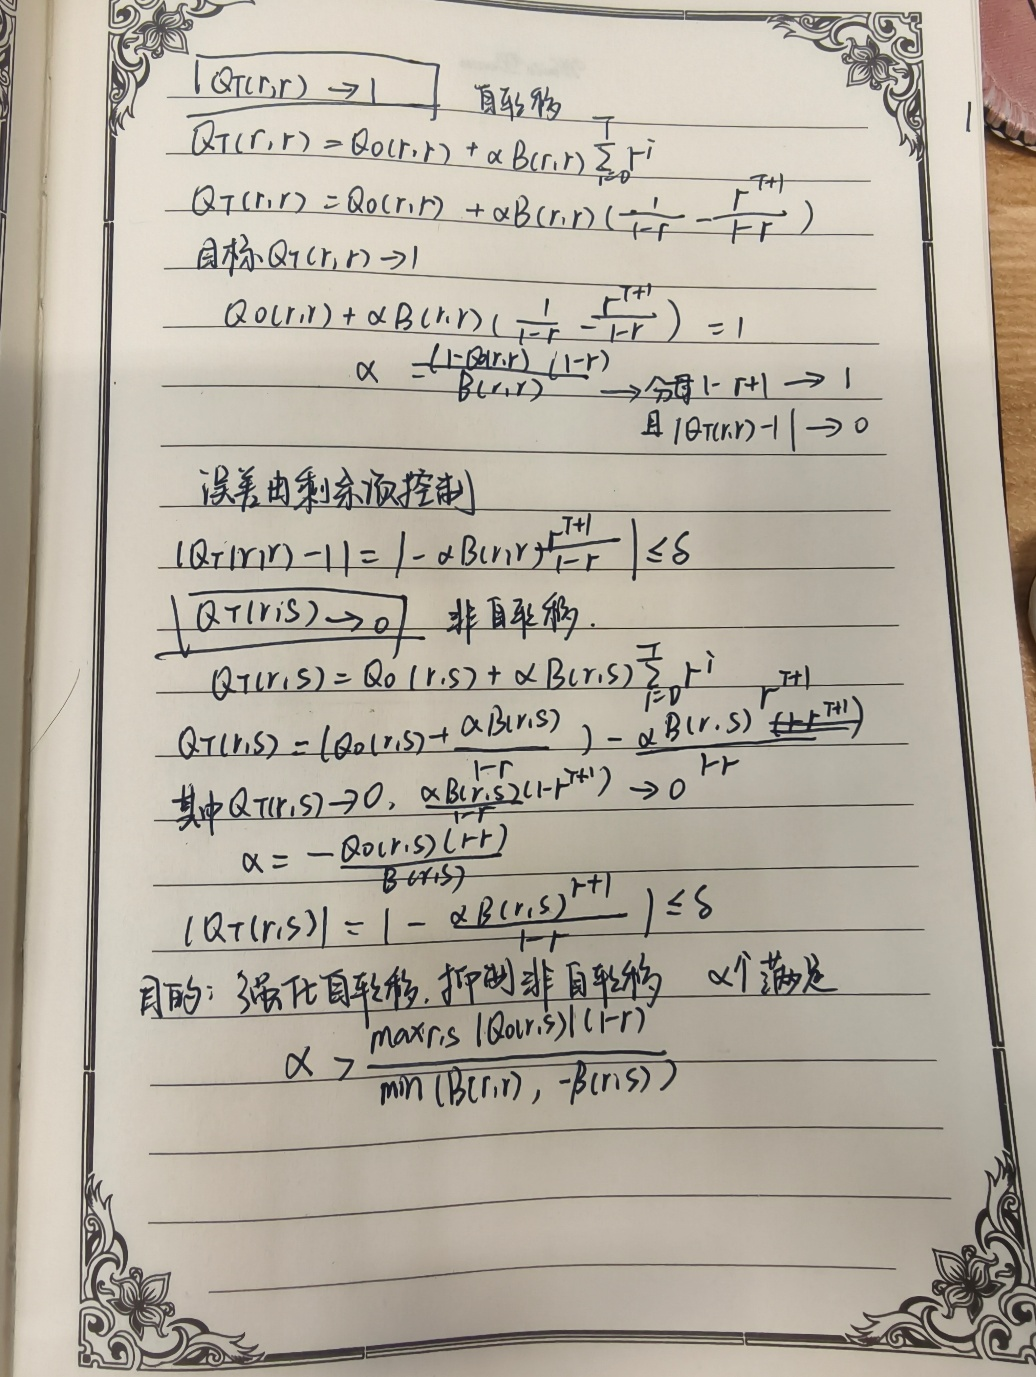 |QT(r,r) → 1
自转移
QT(r,r) = Q0(r,r) + αB(r,r) Σ_{i=0}^{T} r^i
QT(r,r) = Q0(r,r) + αB(r,r) ( 1/(1-r) - r^{T+1}/(1-r) )
目标 QT(r,r) → 1
Q0(r,r) + αB(r,r) ( 1/(1-r) - r^{T+1}/(1-r) ) = 1
α = (1-Q0(r,r) (1-r) / B(r,r) → 分母 1-r+1 → 1
且 |QT(r,r)-1| → 0
误差由剩余项控制
|QT(r,r) -1| = |- αB(r,r) r^{T+1}/(1-r) | ≤ δ
QT(r,s) → 0 非自转移.
QT(r,s) = Q0(r,s) + αB(r,s) Σ_{i=0}^{T} r^i
QT(r,s) = (Q0(r,s) + αB(r,s)/(1-r) ) - αB(r,s) r^{T+1}/(1-r)
其中 QT(r,s) → 0, αB(r,s)(1-r^{T+1})/(1-r) → 0
α = - Q0(r,s)(1-r) / B(r,s)
|QT(r,s)| = |- αB(r,s)^{r+1}/(1-r) | ≤ δ
目的: 强化自转移, 抑制非自转移 α个满足
α > max r,s |Q0(r,s)|(1-r) / min (B(r,r), -B(r,s))
1